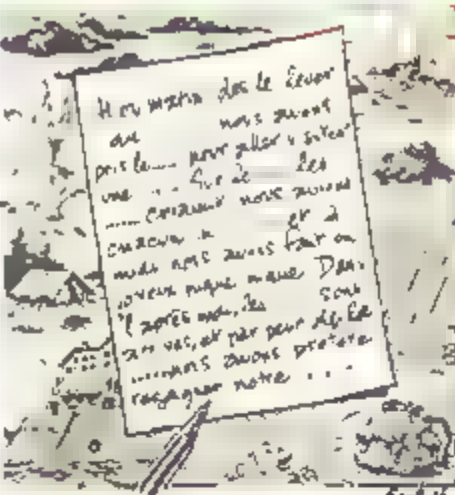 matin dès le lever
du nous avons
pris le .... pour aller visiter
une ... Sur le les
..... criaient nous avions
chacun un et à
midi nous avons fait un
joyeux pique nique Dans
l'après midi, les sont
arrivés, et par peur de la
...... nous avons préféré
regagner notre ....